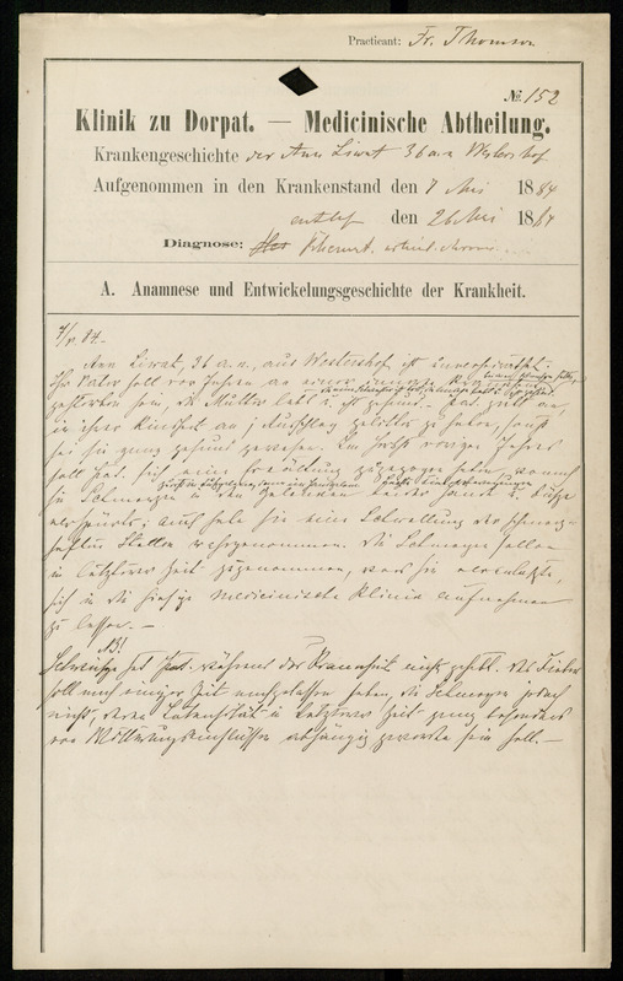 Practicant: Fr. Thomson
№ 152
Klinik zu Dorpat. — Medicinische Abtheilung.
Krankengeschichte der Ann Liwat 36 a. n. Westershof
Aufgenommen in den Krankenstand den 7 Mai 1884
entl den 26 Mai 1884
Diagnose: Rheumat.
A. Anamnese und Entwickelungsgeschichte der Krankheit.
7/V. 84.
Ann Liwat, 36 a. n., aus Westershof ist unverheirathet.
Ihr Vater soll vor Jahren an einer
gestorben sein, die Mutter lebt u. ist gesund. — Pat. gibt an,
in ihrer Kindheit an Ausschlag gelitten zu haben, sonst
sei sie ganz gesund gewesen. Im Herbst vorigen Jahres
soll Pat. sich eine Erkältung zugezogen haben, wonach
sie Schmerzen in den Gelenken beider Hände u. Füsse
verspürte; auch habe sie eine Schwellung der schmerz-
haften Stellen wahrgenommen. Die Schmerzen sollen
in letzterer Zeit zugenommen, was sie veranlasste,
sich in die hiesige medicinische Klinik aufnehmen
zu lassen. —
NB!
Schweisse hat Pat. während der Krankheit nicht gehabt. Das Fieber
soll nach einiger Zeit nachgelassen haben, die Schmerzen jedoch
nicht, deren Intensität in letzterer Zeit ganz besonders
von Witterungseinflüssen abhängig geworden sein soll. —